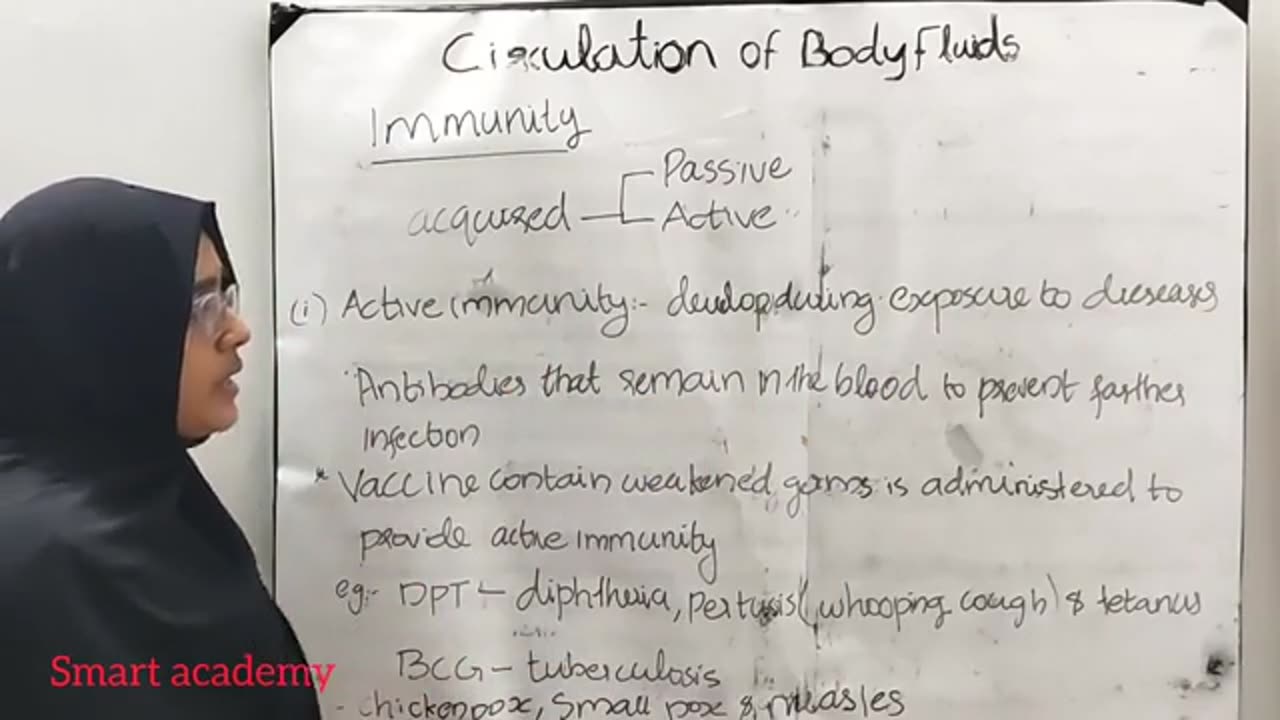 Circulation of Body Fluids
Immunity
Passive
acquired
Active
(i) Active immunity:- develop during exposure to diseases
Antibodies that remain in the blood to prevent farther
infection
* Vaccine contain weakened germs is administered to
provide active immunity
eg:- DPT - diphtheria, pertusis (whooping cough) & tetanus
BCG - tuberculosis
- chickenpox, Small pox & measles
Smart academy